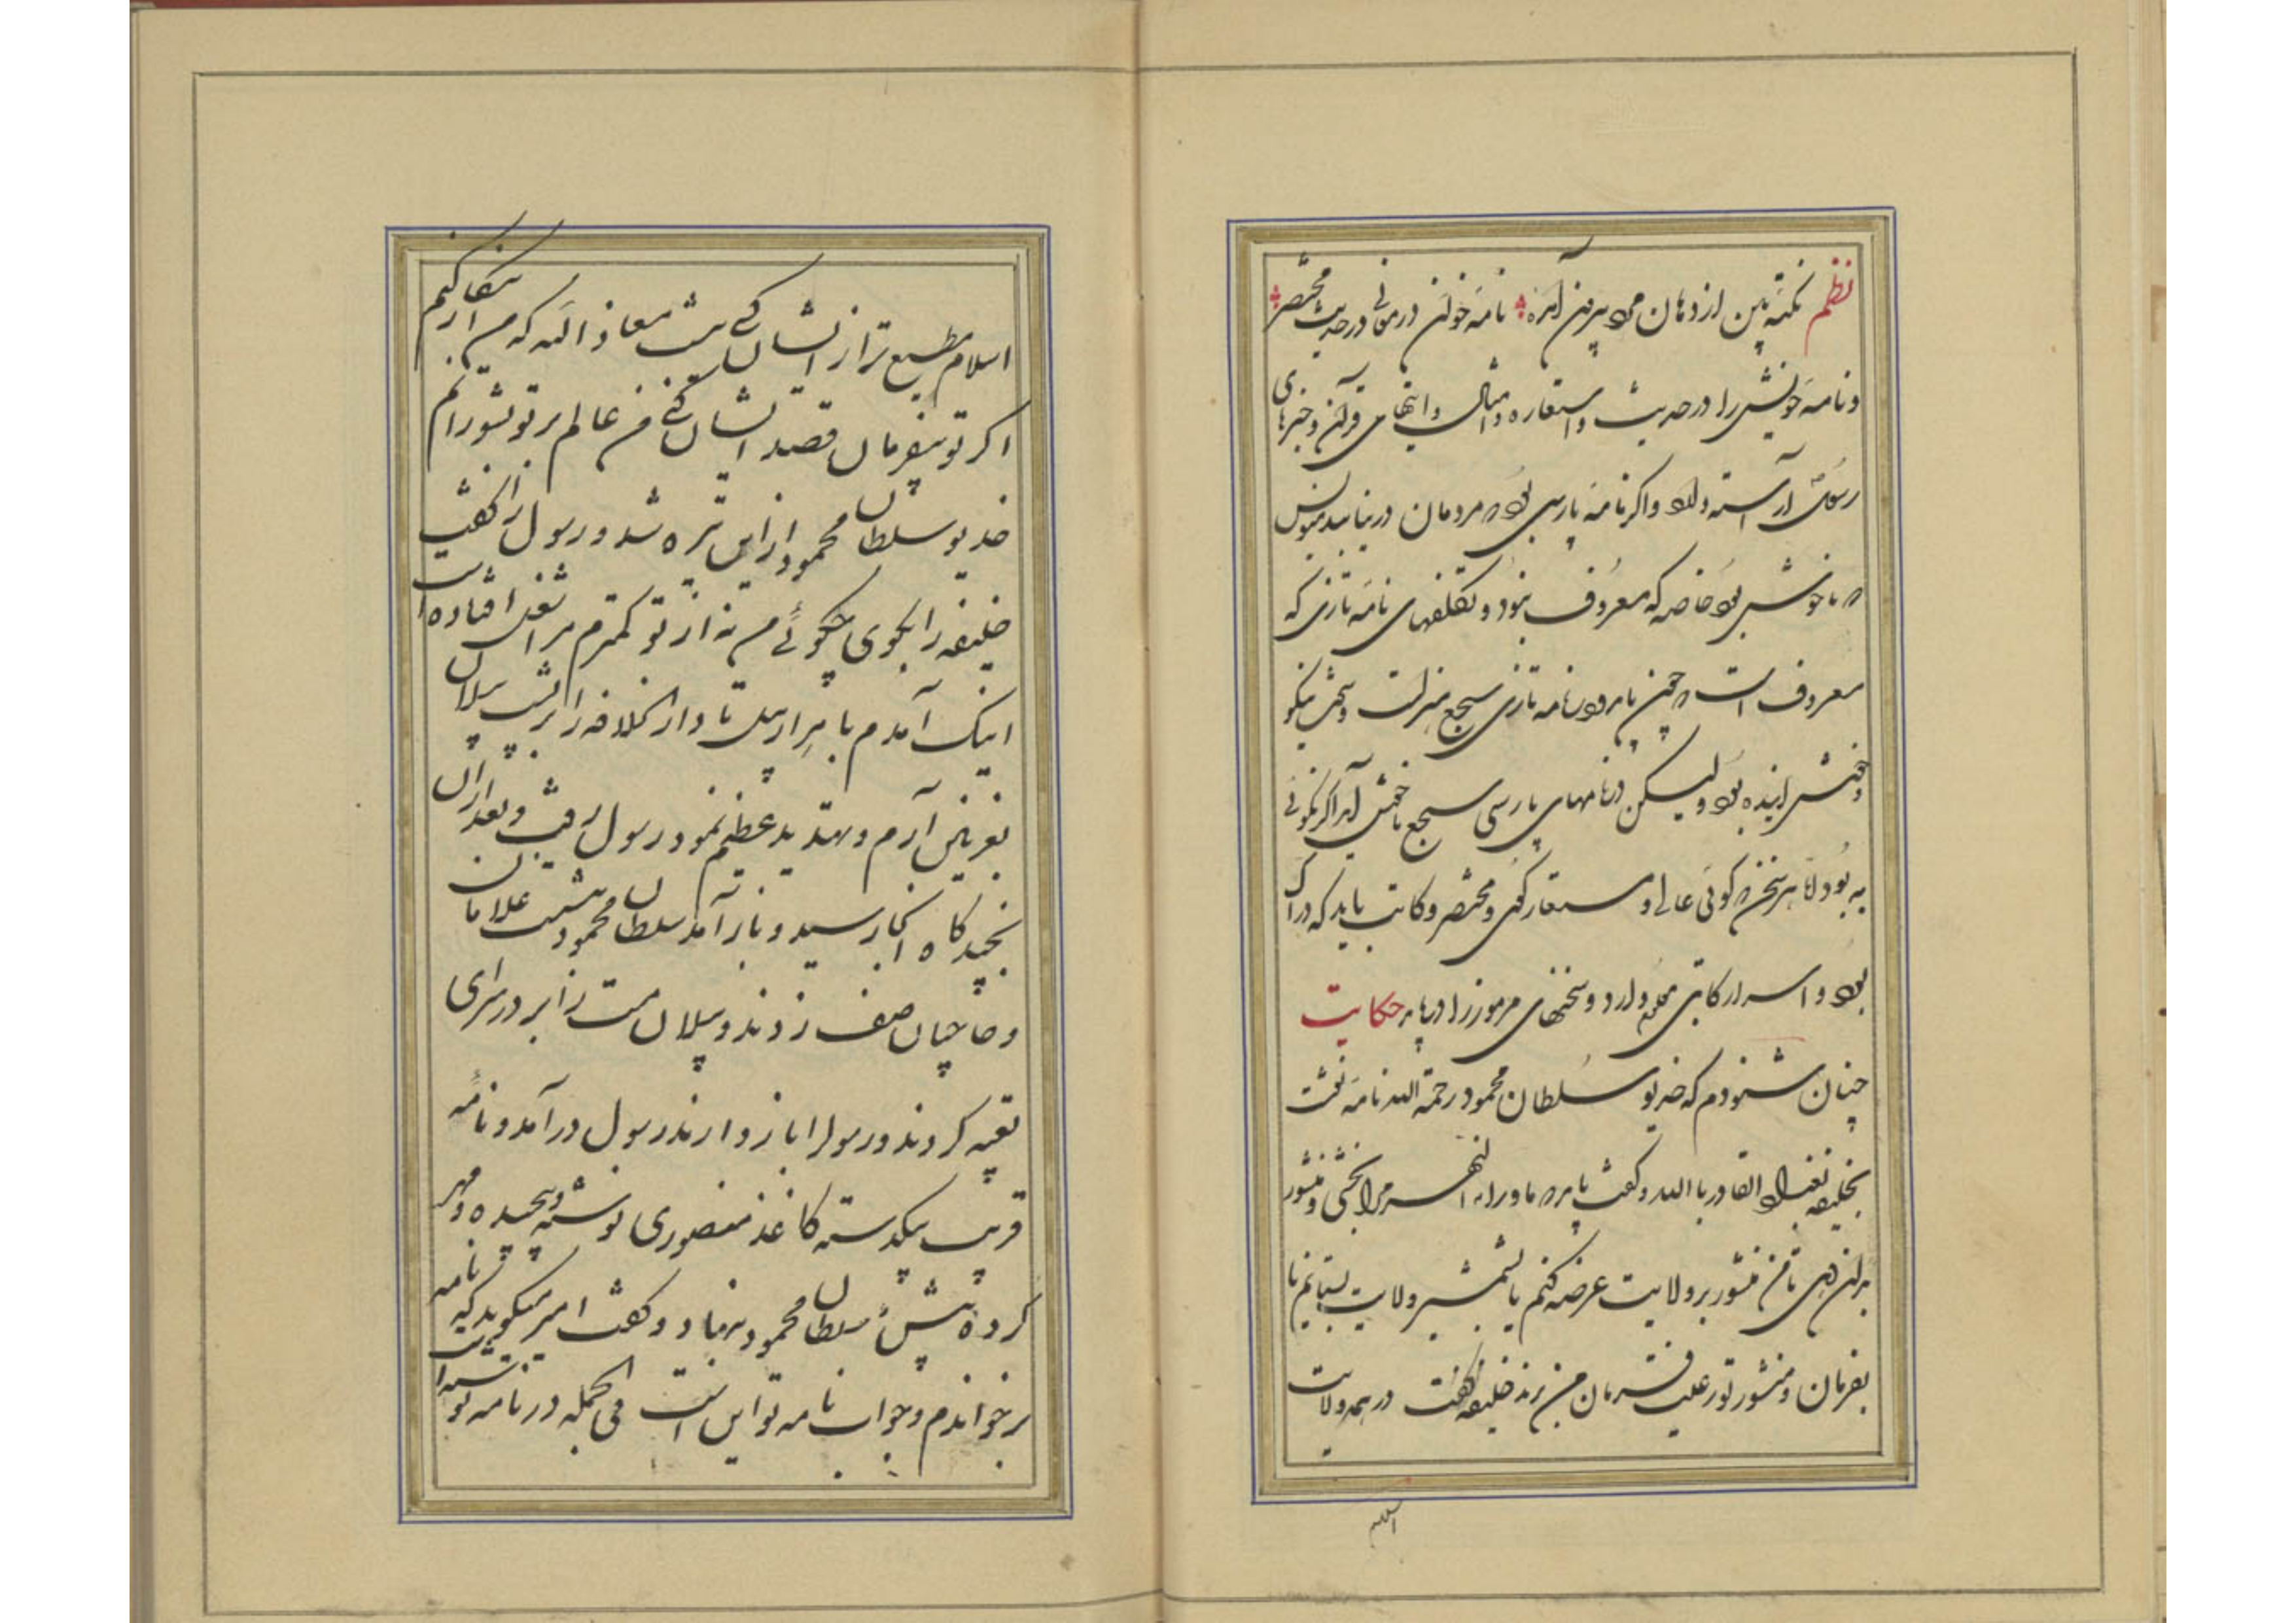 نظم نکته بین از دهان بیرون آمده نامه خوان در معانی در حدیث مختصر
و نامه خویش را در حدیث و استعاره و امثال و آیتهای قرآن و خبرهای
رسول آراسته دار و اگر نامه پارسی بود که مردمان درنیابند منویس
که ناخوش بود خاصه که معروف نبود و تکلفهای نامه تازی که
معروف است که چون باید و در نامه تازی سجع هنرست و سخن نیکو
و خوش آینده بود ولیکن در نامهای پارسی سجع ناخوش آید اگر نگوئی
به بود اما هر سخن که گوئی عالی و مستعار گوی و مختصر و کاتب باید که دراک
بود و اسرار کاتبی معلوم دارد و سخنهای مرموز را دریابد حکایت
چنان شنودم که خدیو سلطان محمود رحمة الله نامه نوشت
بخلیفه بغداد القادر باالله و گفت باید که ماوراء النهر مرا بخشی و منشور
بدان دهی تا من منشور بر ولایت عرضه کنم یا بشمشیر ولایت بستانم یا
بفرمان و منشور تو رعیت فرمان من برند خلیفه گفت در همه ولایت
اسلام
اسلام مطیع تر از ایشان کسی نیست معاذ الله که من این کار کنم
اگر تو بیفرمان قصد ایشان کنی من عالم بر تو بشورانم
خدیو سلطان محمود ازین تیره شد و رسول را گفت
خلیفه را بگوی چگوئی من نه از تو کمترم مرا شغل افتاده است
اینک آمدم با هزار پیل تا دار الخلافه را بر پشت پیلان
بغزنین آرم و تهدید عظیم نمود رسول رفت و بعد از آن
بچندگاه آنجا رسید و باز آمد سلطان محمود بنشست غلامان
و حاجبان صف زدند و پیلان مست را بر در سرای
تعبیه کردند و رسول را باز دادند رسول در آمد و نامه
قریب یکدسته کاغذ منصوری نوشته و پیچیده و مهر
کرده پیش سلطان محمود بنهاد و گفت امیر میگوید که نامه
برخواندم و جواب نامه تو این است فی الجمله در نامه تو